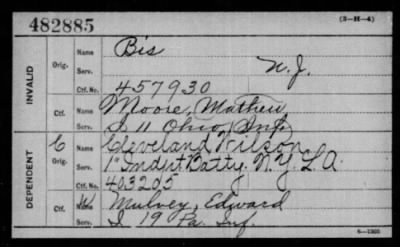 482885 (3-H-4)
INVALID
Orig. Name Bis
Serv. N.J.
Ctf. No. 457930
Ctf. Name Moore, Mathew
Serv. I 11 Ohio, Inf.
DEPENDENT
C Orig. Name Cleveland Wilson
Serv. 1" Indpt Batty. N.Y. L.A.
Ctf. No. 403205
Ctf. Name Mulvey, Edward
Serv. I 19 Pa. Inf.